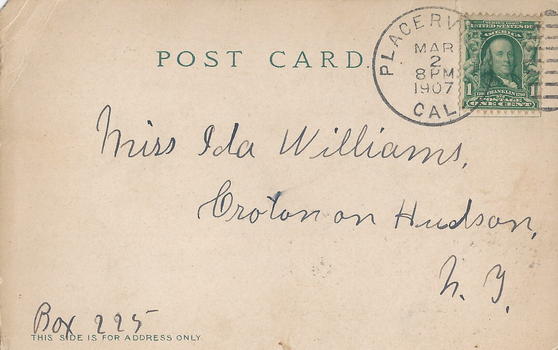 POST CARD.
PLACERV
MAR
2
8PM
1907
CAL
UNITED STATES OF
AMERICA
1 1
POSTAGE
ONE CENT
Miss Ida Williams,
Croton on Hudson,
N. Y.
Box 225
THIS SIDE IS FOR ADDRESS ONLY